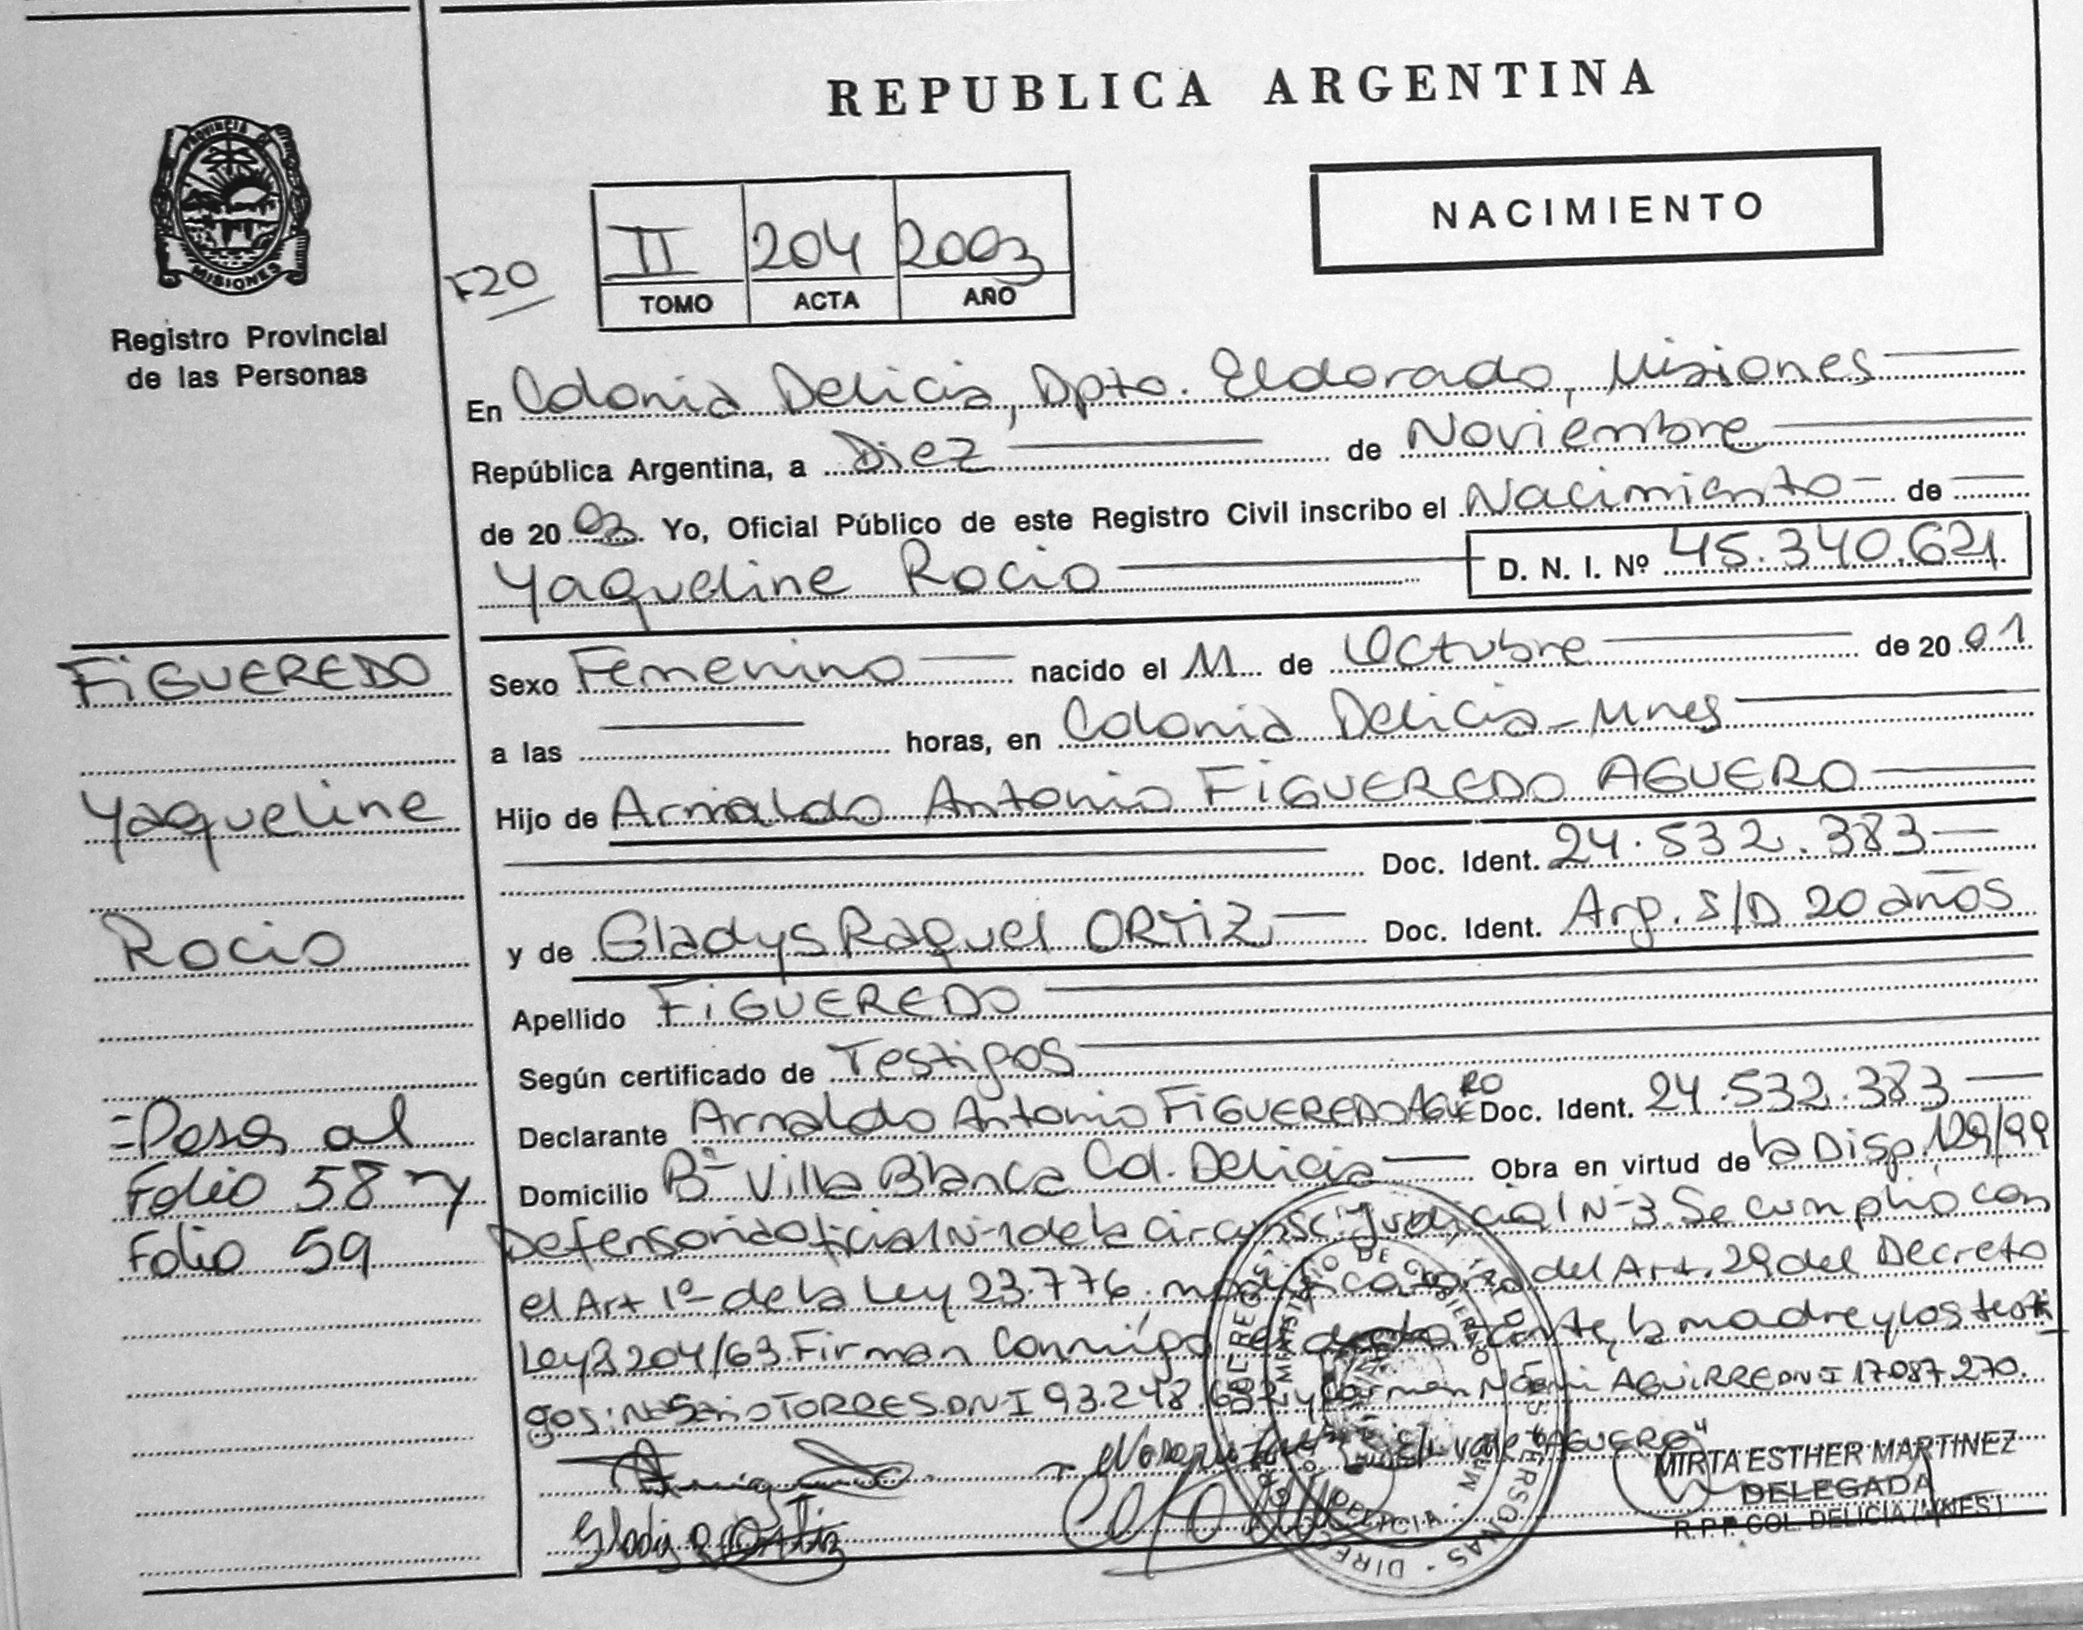 REPUBLICA ARGENTINA
PROVINCIA DE
MISIONES
Registro Provincial
de las Personas
NACIMIENTO
F20
II 204 2003
TOMO ACTA AÑO
En Colonia Delicia, Dpto. Eldorado, Misiones
República Argentina, a Diez de Noviembre
de 2003. Yo, Oficial Público de este Registro Civil inscribo el Nacimiento de
Yaqueline Rocio D. N. I. Nº 45.340.621.
FIGUEREDO
Yaqueline
Rocio
=Pasa al
Folio 58 y
Folio 59
Sexo Femenino nacido el 11 de Octubre de 2001
a las horas, en Colonia Delicia - Mnes
Hijo de Arnaldo Antonio FIGUEREDO AGUERO
Doc. Ident. 24.532.383
y de Gladys Raquel ORTIZ Doc. Ident. Arg. S/D 20 años
Apellido FIGUEREDO
Según certificado de Testigos
Declarante Arnaldo Antonio FIGUEREDO AGUERO Doc. Ident. 24.532.383
Domicilio Bº Villa Blanca Col. Delicia Obra en virtud de la Disp. 129/99
Defensoria oficial Nº 1 de la circunsc. Judicial Nº 3. Se cumplió con
el Art 1º de la Ley 23.776. modificatoria del Art. 29 del Decreto
Ley 8204/63. Firman Conmigo el declarante, la madre y los testi
gos: TORRES DNI 93.248. y Carmen Noemi AGUIRRE DNI 17.087.270.
"AGUERO"
MIRTA ESTHER MARTINEZ
DELEGADA
R.P.P. COL. DELICIA (MNES)
Gladys R Ortiz